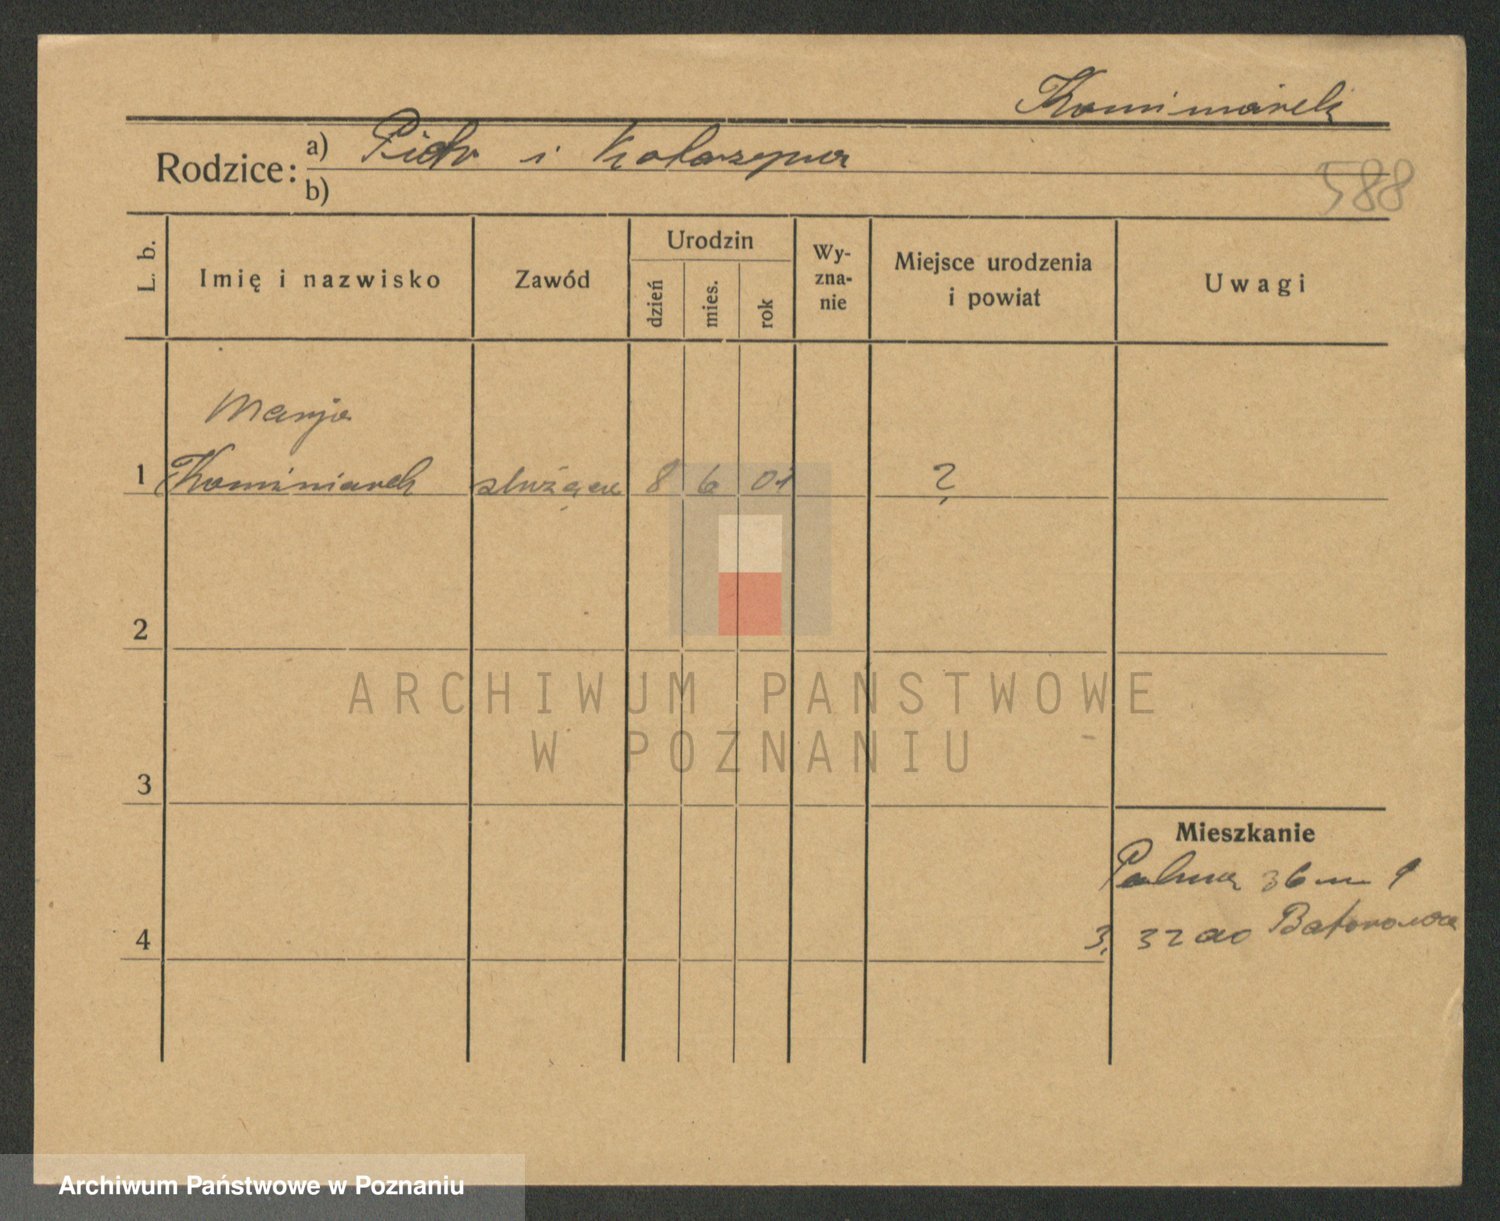 Kominiarek
Rodzice: a) Piotr i Katarzyna
b)
588
L. b.
Imię i nazwisko
Zawód
Urodzin
dzień
mies.
rok
Wy-
zna-
nie
Miejsce urodzenia
i powiat
Uwagi
Marja
1 Kominiarek służąca 8 6 01 ?
2
ARCHIWUM PAŃSTWOWE
W POZNANIU
3
Mieszkanie
36 m 1
4
3. 32 do Batorowa
Archiwum Państwowe w Poznaniu